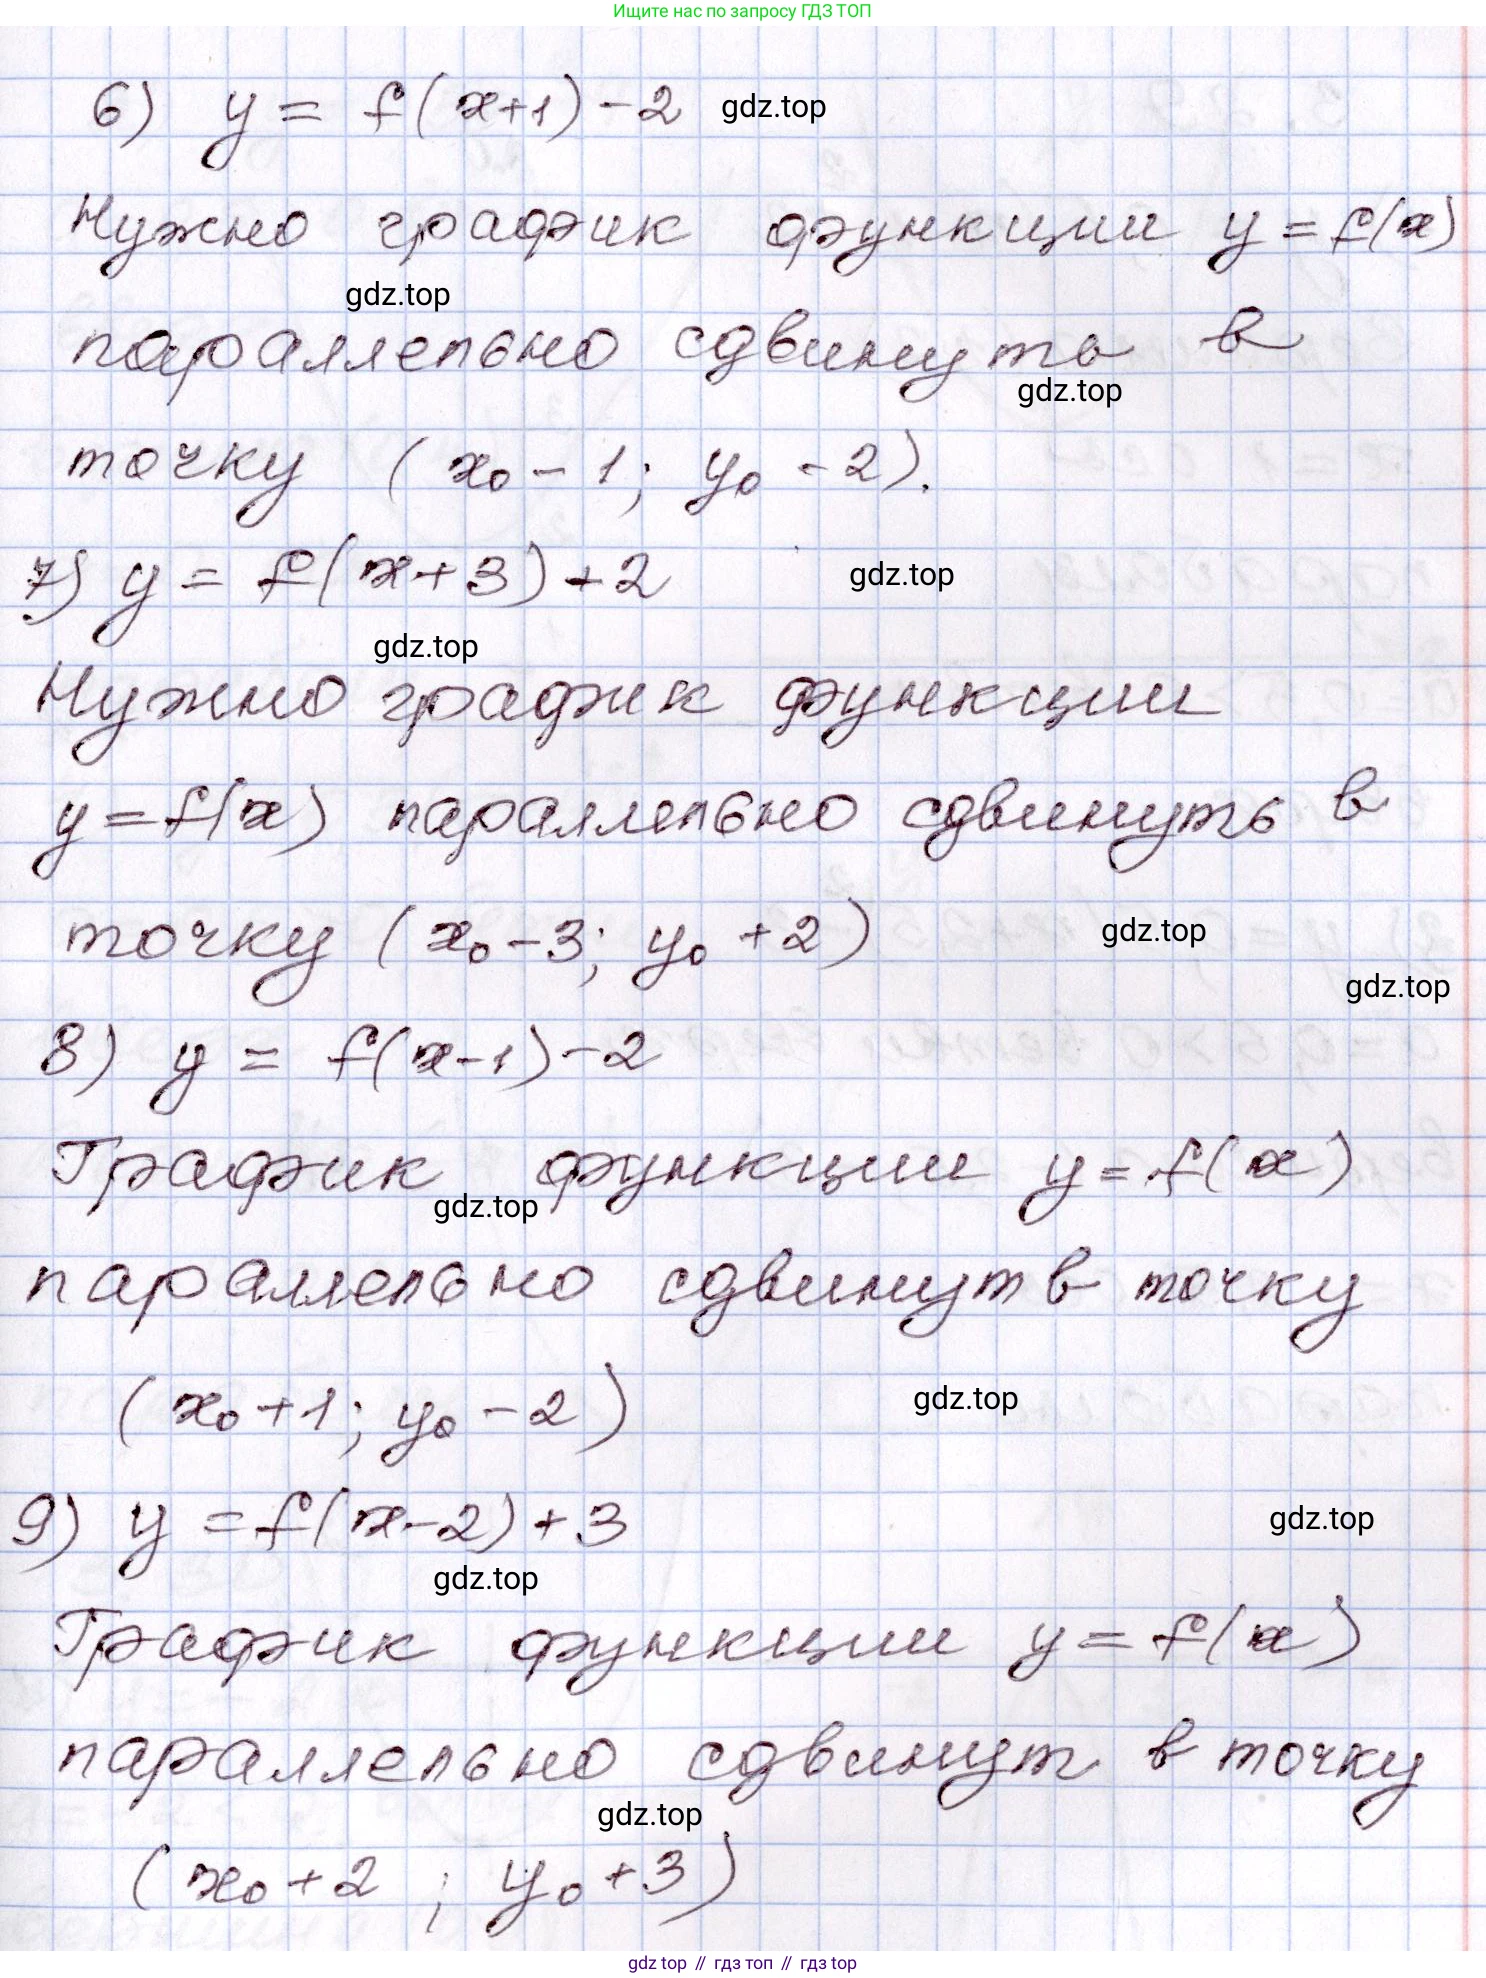 Ищите нас по запросу ГДЗ ТОП
6) y = f(x+1) - 2 gdz.top
Нужно график функции y = f(x)
gdz.top
параллельно сдвинуть в
gdz.top
точку (x₀ - 1; y₀ - 2).
7) y = f(x+3) + 2 gdz.top
gdz.top
Нужно график функции
y = f(x) параллельно сдвинуть в
точку (x₀ - 3; y₀ + 2) gdz.top
gdz.top
8) y = f(x-1) - 2
График функции y = f(x)
gdz.top
параллельно сдвинут в точку
(x₀ + 1; y₀ - 2) gdz.top
9) y = f(x-2) + 3 gdz.top
gdz.top
График функции y = f(x)
параллельно сдвинут в точку
gdz.top
(x₀ + 2 ; y₀ + 3)
gdz top // гдз топ // гдз top